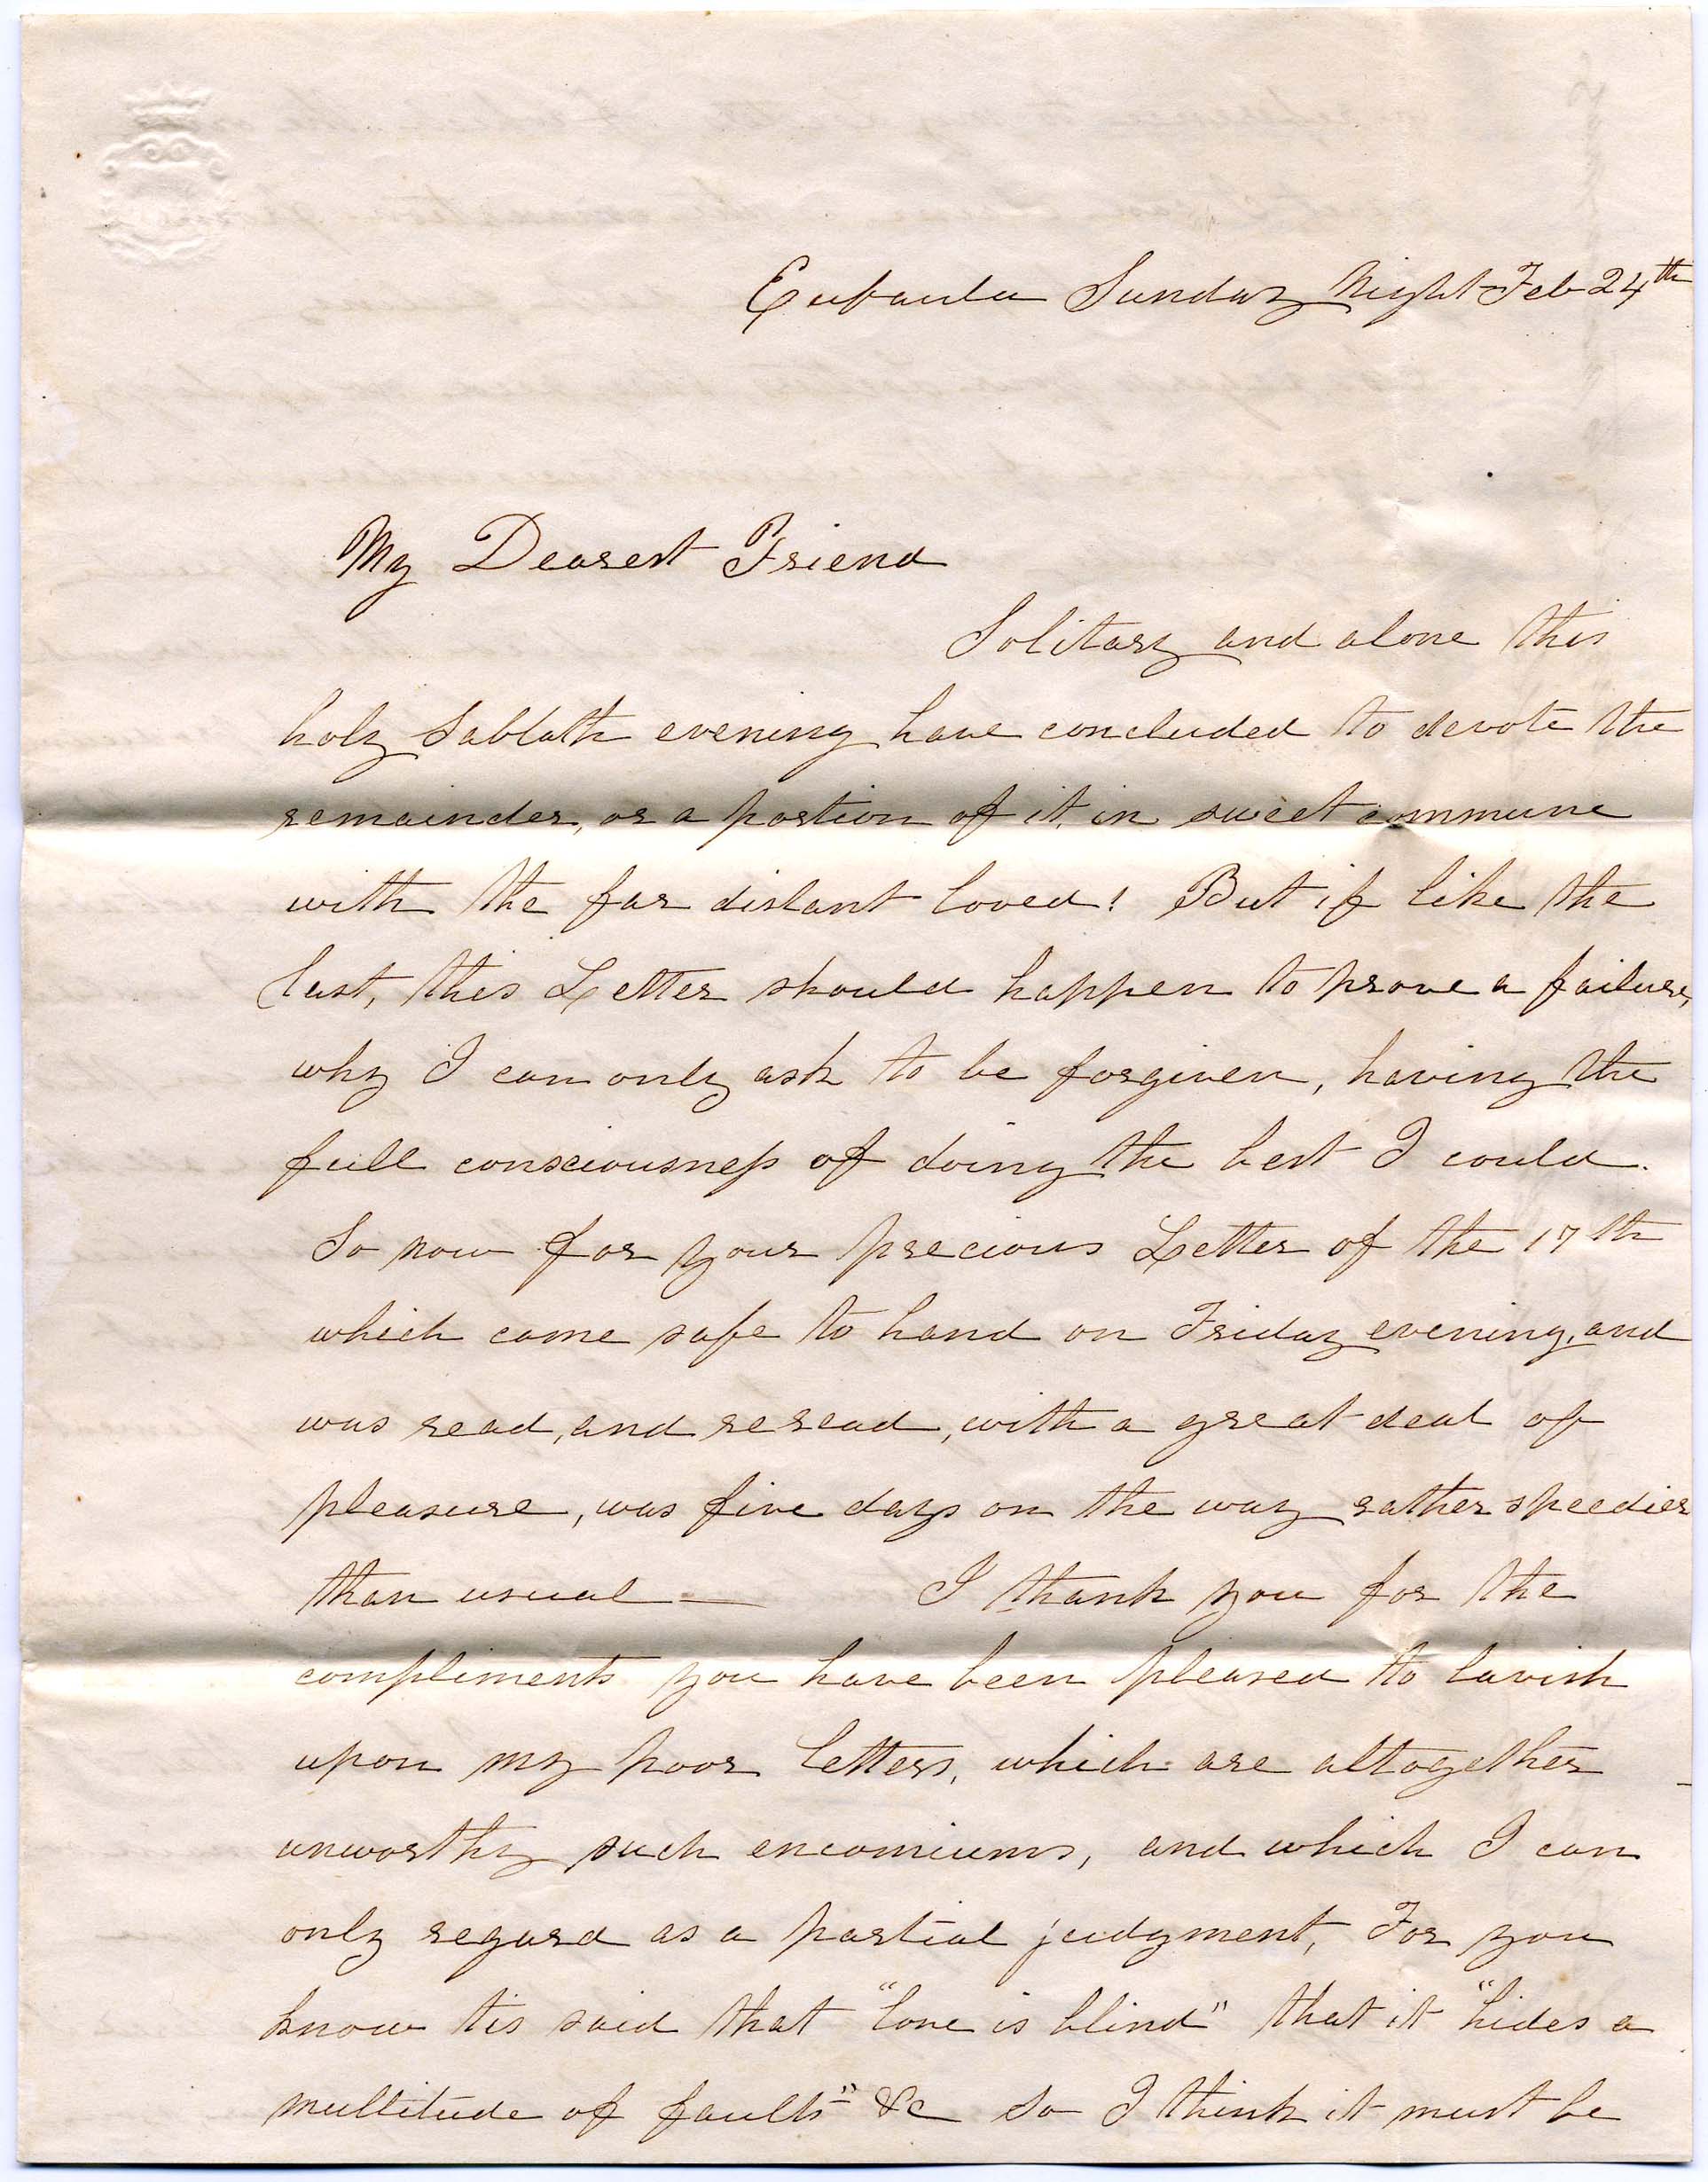 Eufaula Sunday Night Feb 24th
My Dearest Friend
Solitary and alone this
holy Sabbath evening have concluded to devote the
remainder, or a portion of it, in sweet commune
with the far distant loved! But if like the
last, this Letter should happen to prove a failure,
why I can only ask to be forgiven, having the
full consciousness of doing the best I could.
So now for your precious Letter of the 17th
which came safe to hand on Friday evening, and
was read, and reread, with a great deal of
pleasure, was five days on the way rather speedier
than usual — I thank you for the
compliments you have been pleased to lavish
upon my poor letters, which are altogether
unworthy such encomiums, and which I can
only regard as a partial judgment, For you
know tis said that "love is blind" that it "hides a
multitude of faults" &c so I think it must be